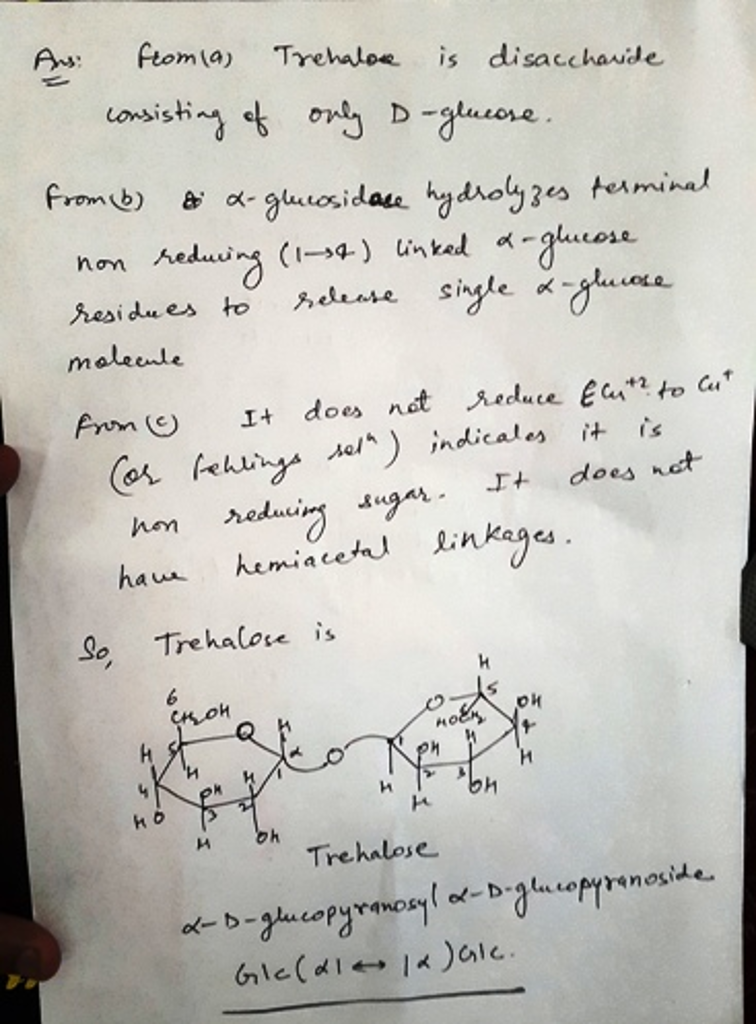 Ans: from(a) Trehalose is disaccharide
consisting of only D-glucose.
from(b) α-glucosidase hydrolyzes terminal
non reducing (1→4) linked α-glucose
residues to release single α-glucose
molecule
from(c) It does not reduce Cu+2 to Cu+
(or fehlings solⁿ) indicates it is
non reducing sugar. It does not
have hemiacetal linkages.
So, Trehalose is
H
6
CH₂OH O H O 5 OH
HOCH₂ 6 4
H 5 H α 1 O 1 OH H H
4 OH H 2 3
HO 3 2 H H OH
H OH
Trehalose
α-D-glucopyranosyl α-D-glucopyranoside
Glc(α1↔1α)Glc.